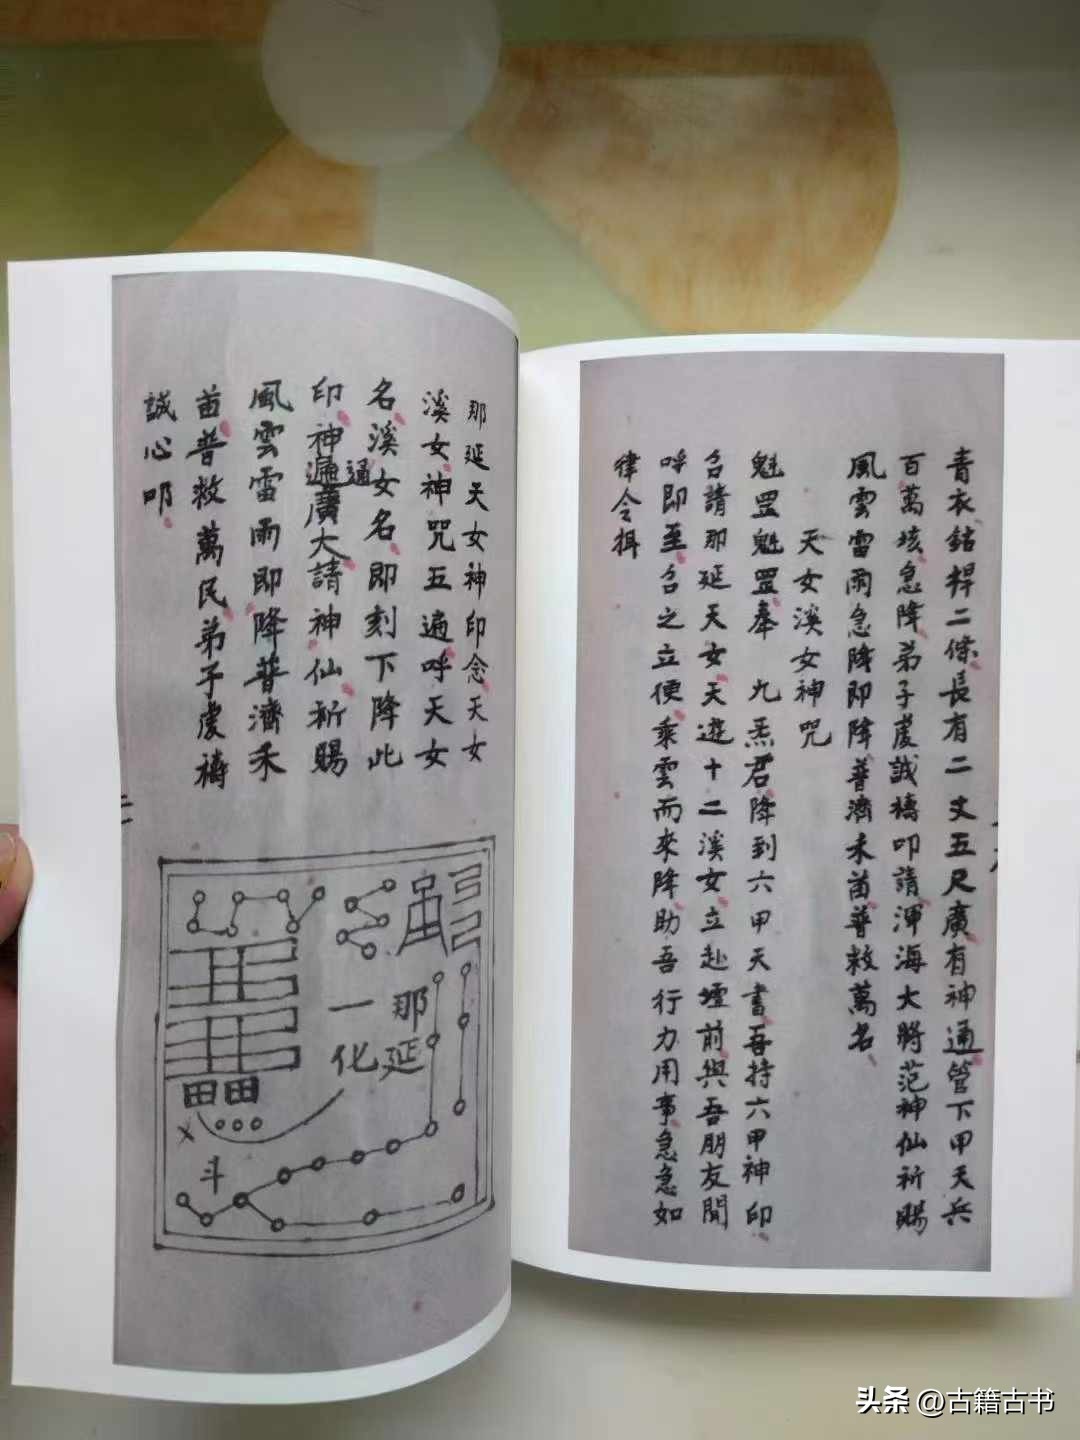 青衣鋁桿二條長有二丈五尺廣有神通管下甲天兵
百萬垓急降弟子虔誠禱叩請渾海大將范神仙祈賜
風雲雷雨急降即降普濟禾苗普救萬名
天女溪女神咒
魁罡魁罡奉 九炁君降到六甲天書吾持六甲神印
召請那延天女天遊十二溪女立赴壇前與吾朋友聞
呼即至召之立便乘雲而來降助吾行力用事急急如
律令揖
那延天女神印念天女
溪女神咒五遍呼天女
名溪女名即刻下降此
印神通廣大請神仙祈賜
風雲雷雨即降普濟禾
苗普救萬民弟子虔禱
誠心叩
二
那延
一化
斗
头条 @古籍古书